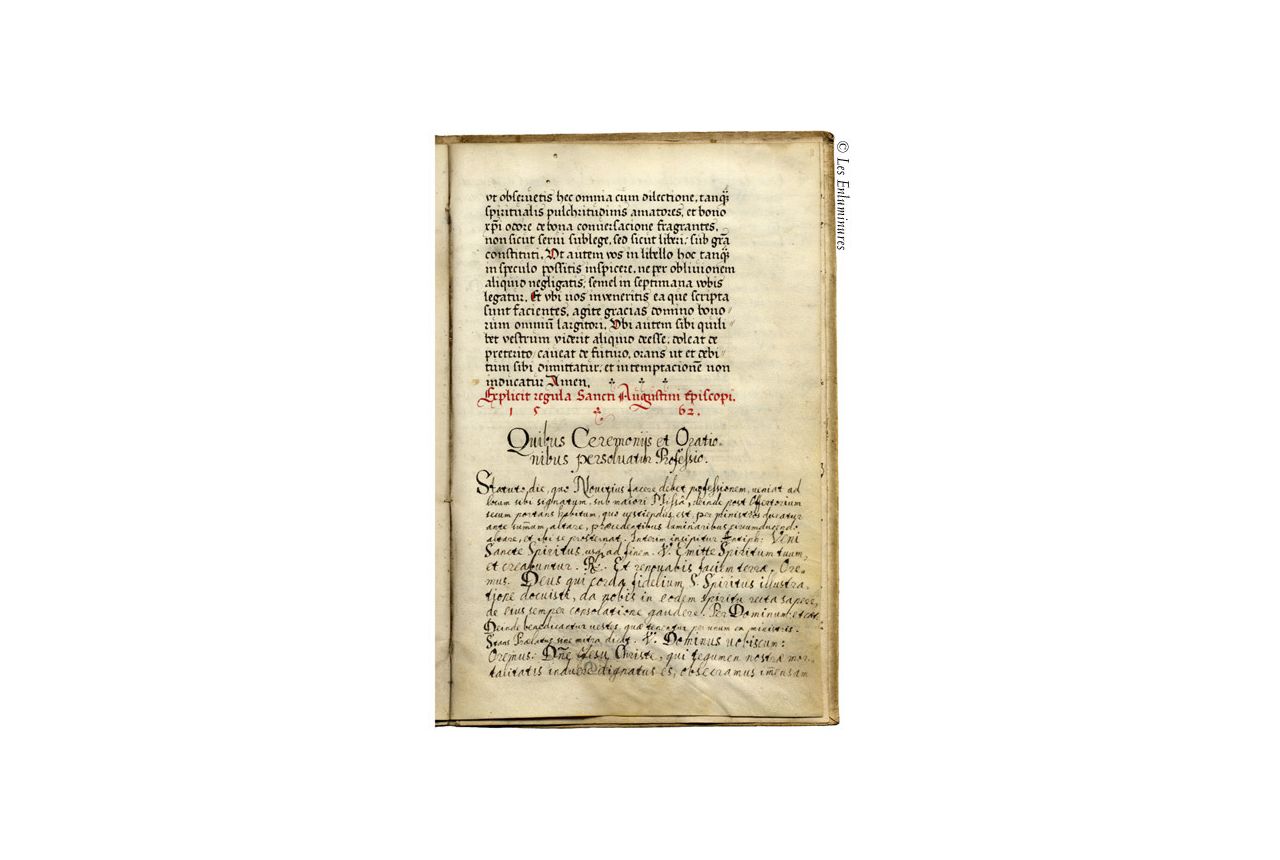 vt obseruetis hec omnia cum dilectione, tanq̃
spiritualis pulchritudinis amatores, et bono
xp̃i odore de bona conuersacione fragrantes,
non sicut serui sub lege, sed sicut liberi, sub grã
constituti. Vt autem vos in libello hoc tanq̃
in speculo possitis inspicere, ne per obliuionem
aliquid negligatis, semel in septimana vobis
legatur. Et vbi uos inueneritis ea que scripta
sunt facientes, agite gracias domino bono〃
rum omniũ largitori. Vbi autem sibi quili〃
bet vestrum viderit aliquid deesse, doleat de
preterito, caueat de futuro, orans ut et debi〃
tum sibi dimittatur, et in temptacionẽ non
inducatur Amen.
Explicit regula Sancti Augustini Episcopi.
1 5 62.
Quibus Ceremonijs et Oratio-
nibus persoluatur Professio.
Statuto die, quo Nouitius facere debet professionem, ueniat ad
locum sibi signatum, sub maiori Missâ, deinde post Offertorium
secum portans habitum, quo uestiendus est, per ministros ducatur
ante sum̃um altare, præcedentibus luminaribus circumducendo
altare, et ibi se prosternat. Interim incipitur Antiph: Veni
Sancte Spiritus usq; ad finem. V. Emitte Spiritum tuum,
et creabuntur. R. Et renouabis faciem terræ. Ore-
mus. Deus qui corda fidelium S. Spiritus illustra-
tione docuisti, da nobis in eodem spiritu recta sapere,
de eius semper consolatione gaudere. Per Dominum
Deinde benedicantur uestes, quæ tenentur per unum ex ministris.
Stans Prælatus sine mitra dicit. V. Dominus uobiscum:
Oremus. Dñe Iesu Christe, qui tegumen nostræ mor-
talitatis induere dignatus es, obsecramus im̃ensam
© Les Enluminures